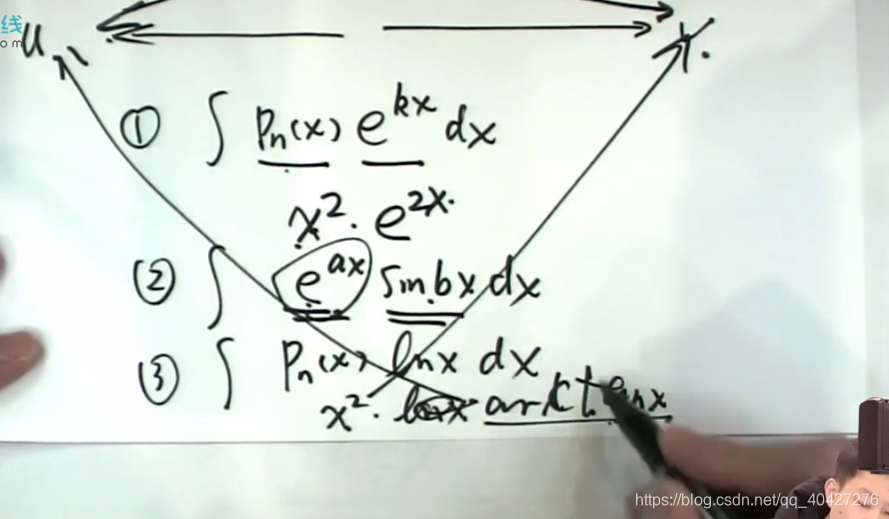 线
om
u v.
① ∫ Pn(x) e^{kx} dx
x². e^{2x}.
② ∫ e^{ax} sin bx dx
③ ∫ Pn(x) ln x dx
x². ln x arctan x
https://blog.csdn.net/qq_40427276